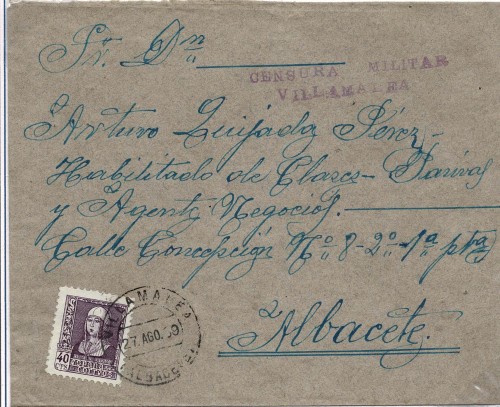 Sr. Dn.
CENSURA MILITAR
VILLAMALEA
Arturo Quijada Pérez-
Habilitado de Clases Pasivas
y Agente Negocios.
Calle Concepción Nº 8-2º-1ª pta
Albacete.
VILLAMALEA
27 AGO. 39
ALBACETE
40
CTS